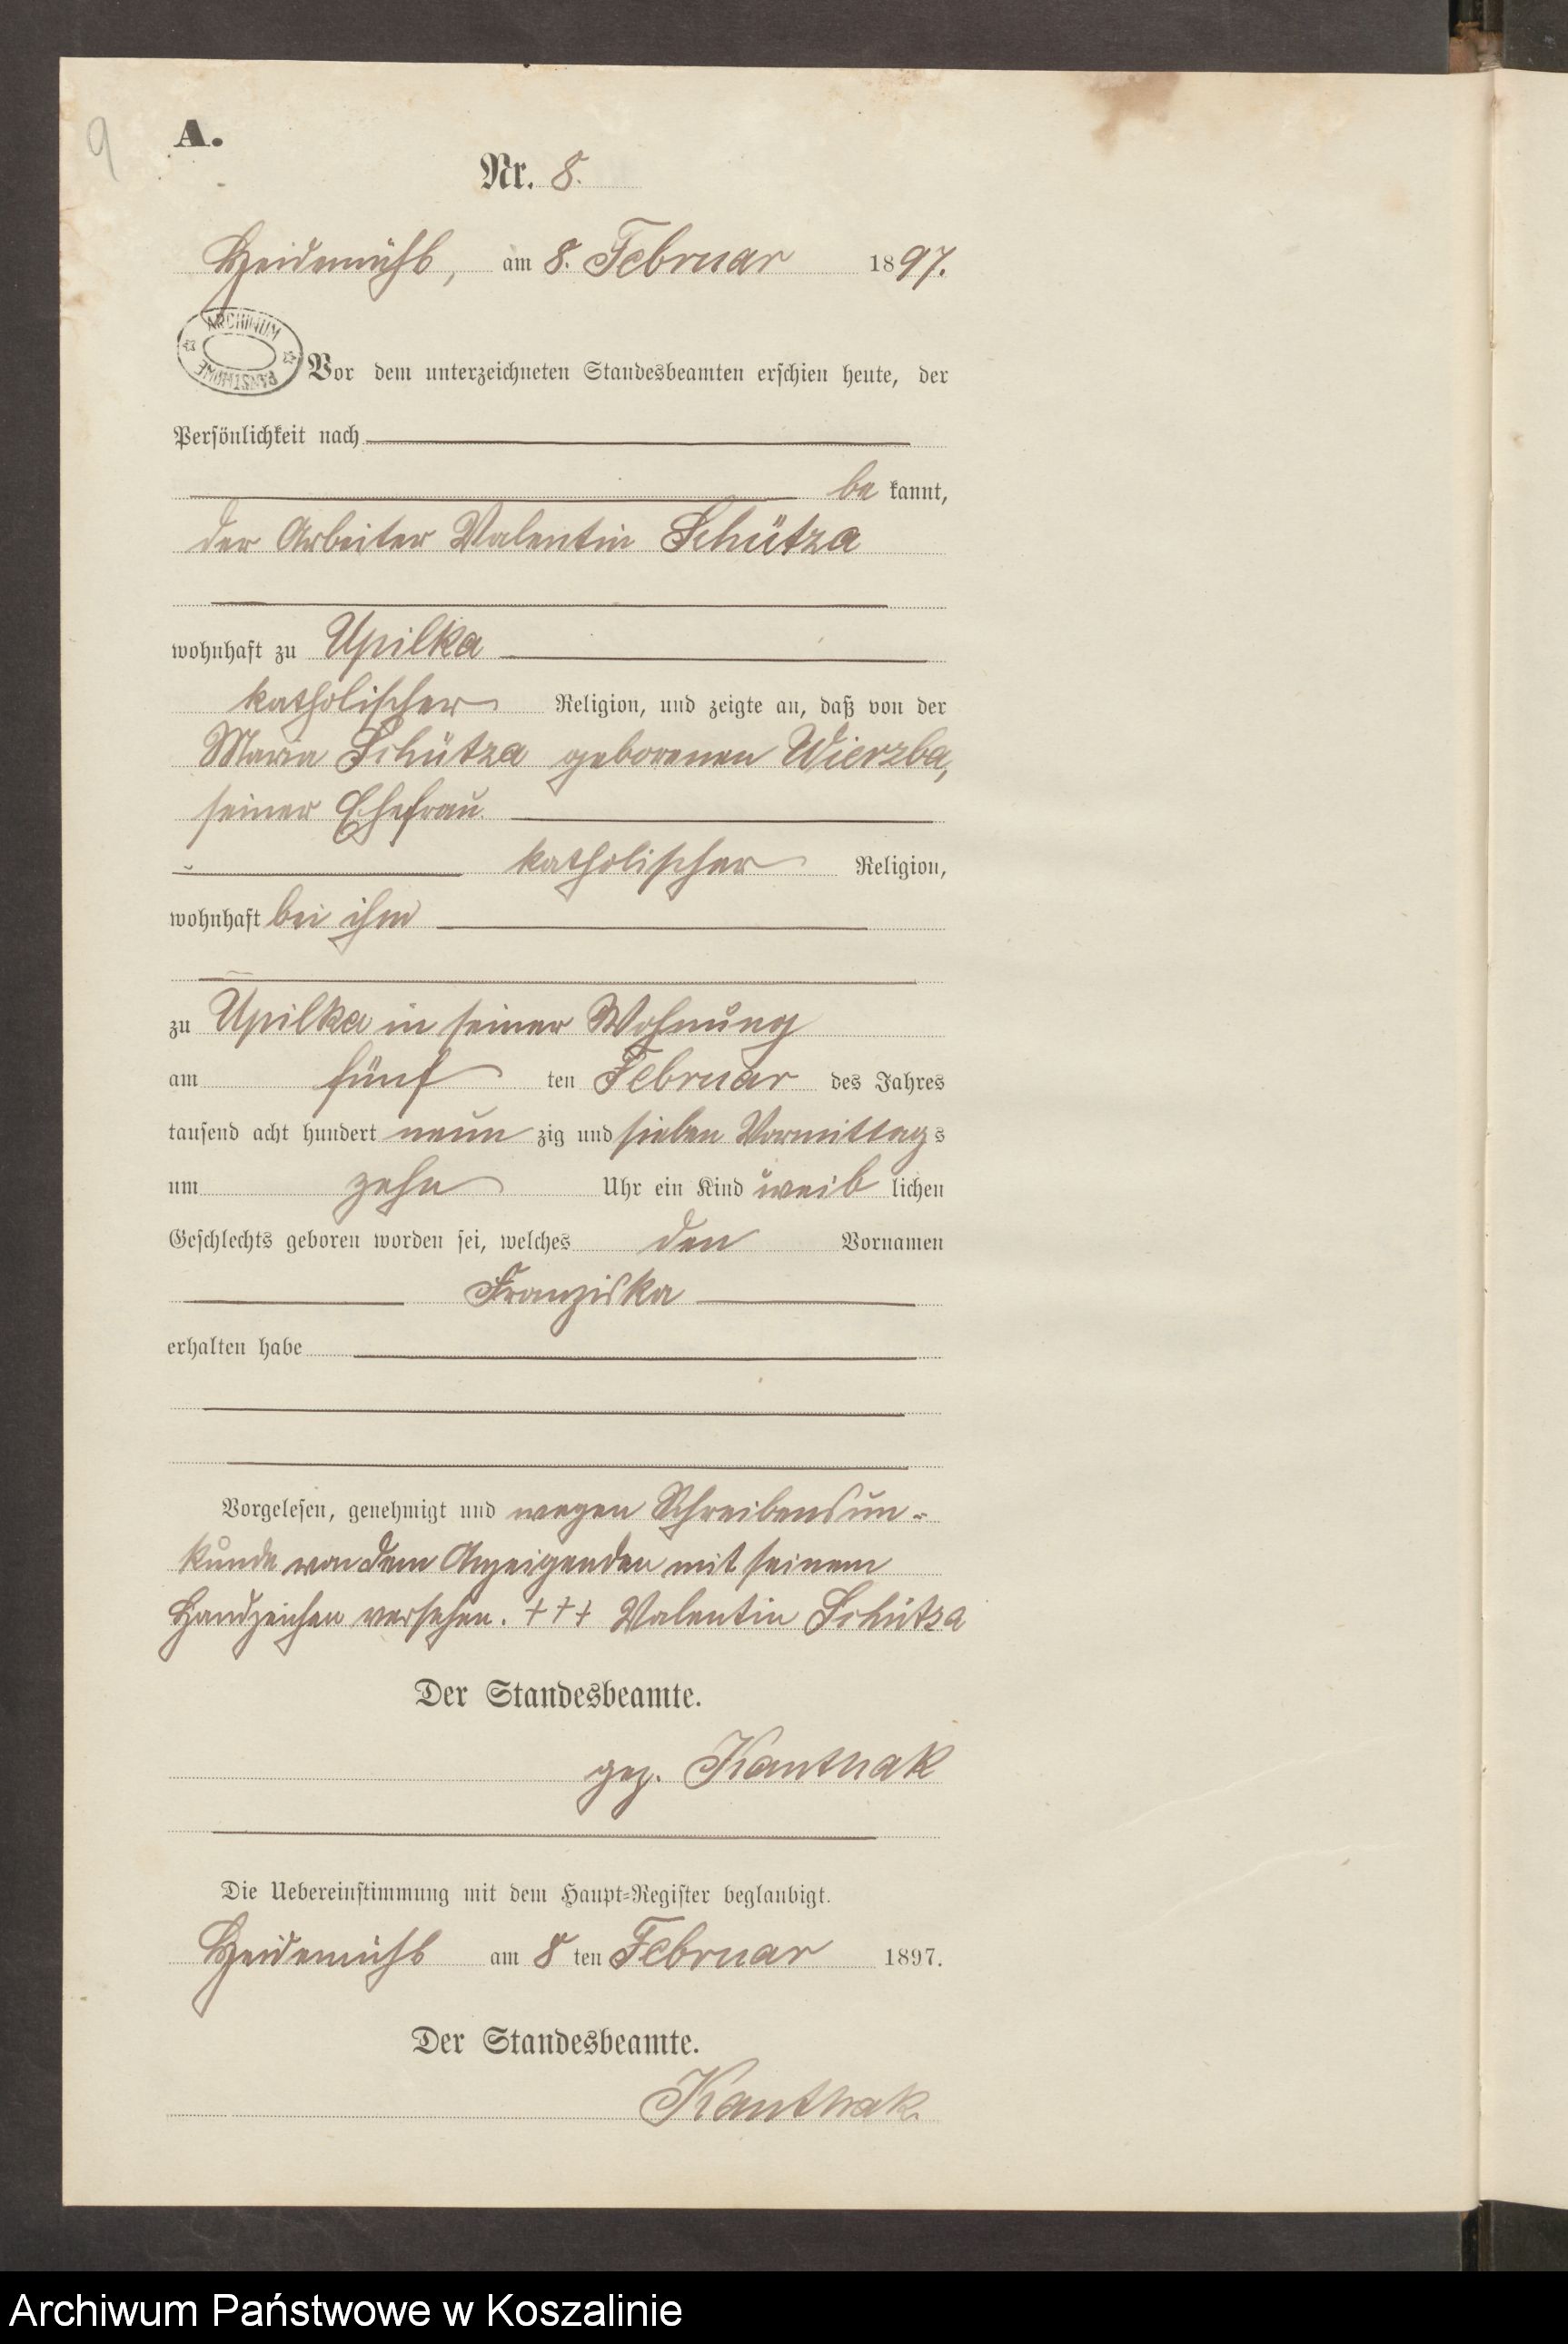 9
A.
Nr. 8.
Heidemühl, am 8. Februar 1897.
ARCHIWUM
PAŃSTWOWE
Vor dem unterzeichneten Standesbeamten erschien heute, der
Persönlichkeit nach
be kannt,
der Arbeiter Valentin Schütza
wohnhaft zu Upilka
katholischer Religion, und zeigte an, daß von der
Maria Schütza geborenen Wierzba,
seiner Ehefrau
katholischer Religion,
wohnhaft bei ihm
zu Upilka in seiner Wohnung
am fünf ten Februar des Jahres
tausend acht hundert neun zig und sieben Vormittag s
um zehn Uhr ein Kind weib lichen
Geschlechts geboren worden sei, welches den Vornamen
Franziska
erhalten habe
Vorgelesen, genehmigt und wegen Schreibensun-
kunde von dem Anzeigenden mit seinem
Handzeichen versehen. +++ Valentin Schütza
Der Standesbeamte.
gez. Kanthak
Die Uebereinstimmung mit dem Haupt-Register beglaubigt.
Heidemühl am 8 ten Februar 1897.
Der Standesbeamte.
Kanthak.
Archiwum Państwowe w Koszalinie